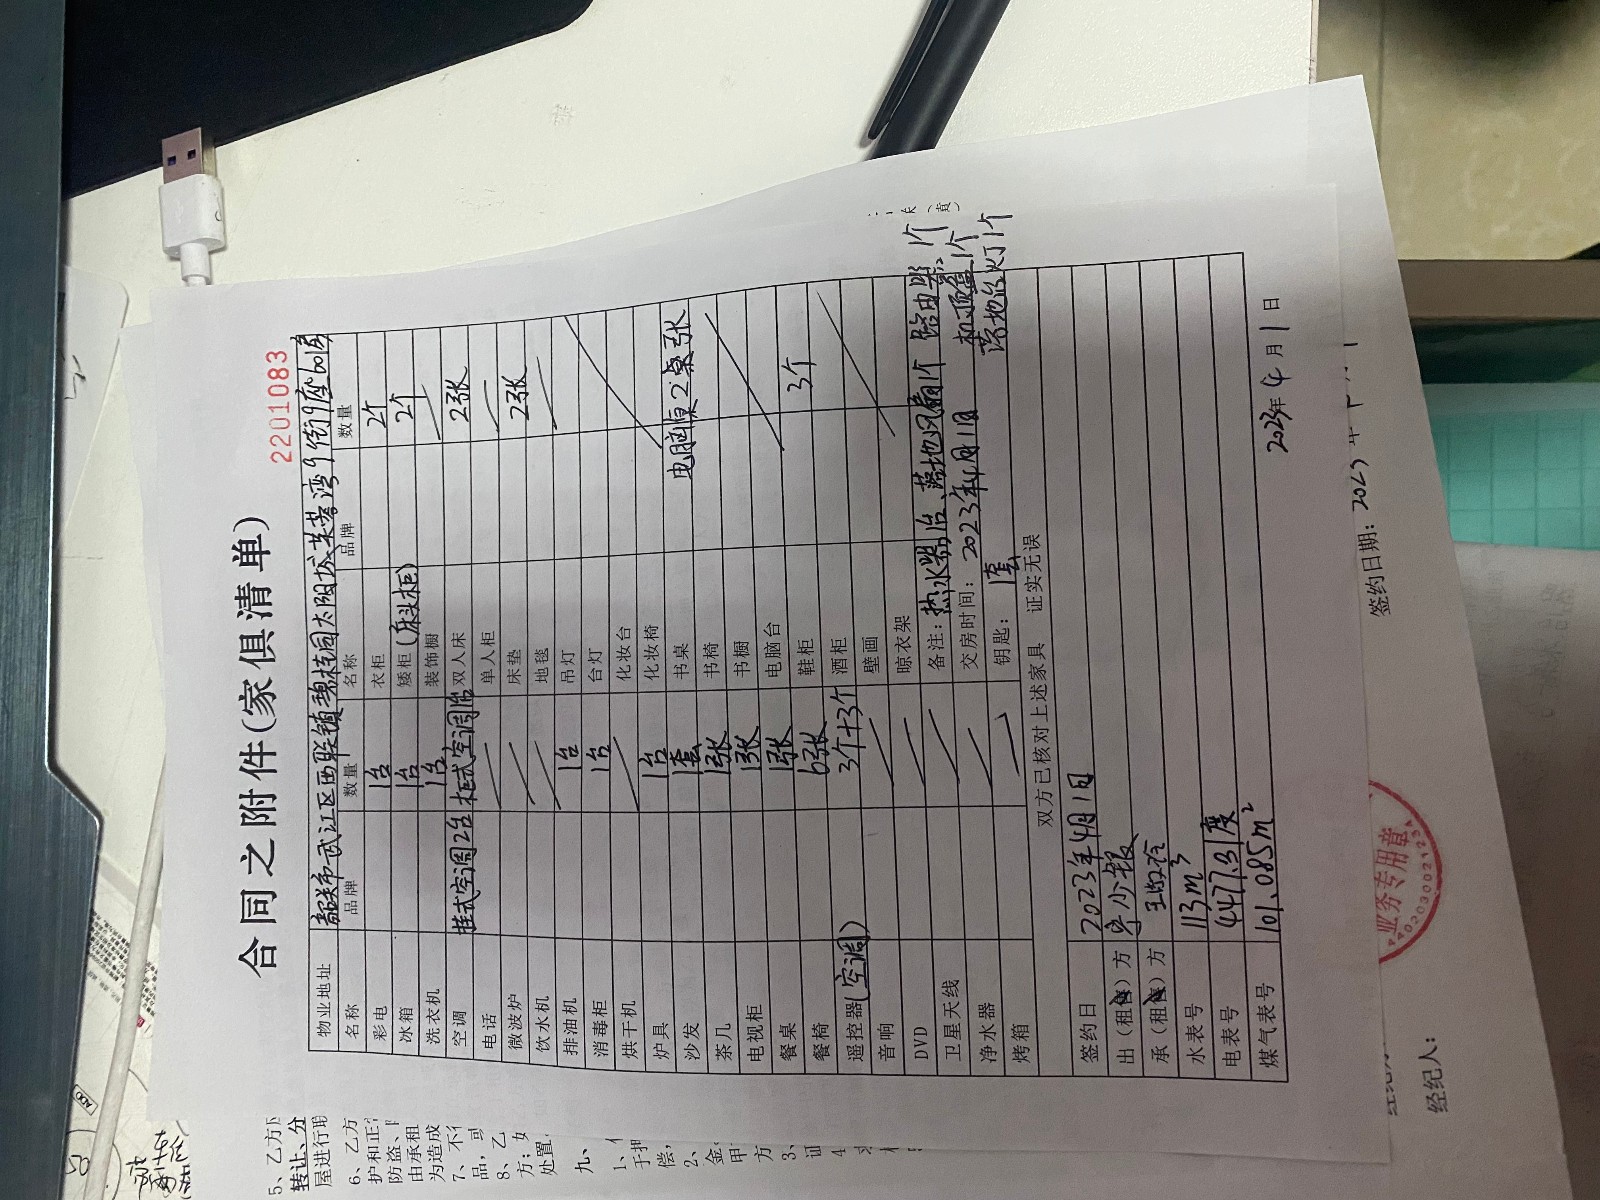 合同之附件(家俱清单)
2201083
物业地址 韶关市武江区西联镇碧桂园太阳城芙蓉湾9街9座601房
名称 品牌 数量 名称 品牌 数量
彩电 1台 衣柜 2个
冰箱 1台 矮柜(床头柜) 2个
洗衣机 1台 装饰橱
空调 挂式空调2台 柜式空调1台 双人床 2张
电话 单人柜
微波炉 床垫 2张
饮水机 地毯
排油机 1台 吊灯
消毒柜 1台 台灯
烘干机 化妆台
炉具 1台 化妆椅
沙发 1套 书桌 电脑桌2张
茶几 1张 书椅
电视柜 1张 书橱
餐桌 1张 电脑台
餐椅 6张 鞋柜 3个
遥控器(空调) 3个+3个 酒柜
音响 壁画
DVD 晾衣架
卫星天线 备注: 热水器1台、落地风扇1个 路由器1个
净水器 交房时间: 2023年4月1日 机顶盒1个
烤箱 钥匙: 1套 落地台灯1个
双方已核对上述家具 证实无误
签约日 2023年4月1日
出(租售)方
承(租)方
水表号 113m³
电表号 4477.31度
煤气表号 101.085m²
2023年4月1日
签约日期: 2023年
经纪人:
业务专用章
5、乙方
转让、分
屋进行
6、乙方
护和正
防盗、
由承租
为造成
7、不
品,可
8、乙
方;
处置
九、
1、
于
偿,
2、
金
甲
方
3、
证
4
ADD